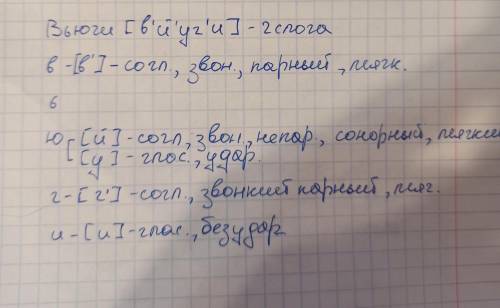 Вьюги [в'й'уг'и] - 2 слога
в - [в'] - согл., звон., парный, мягк.
ь
ю [й] - согл, звон., непар, сонорный, мягкий
[у] - глас., удар.
г - [г'] - согл., звонкий парный, мяг.
и - [и] - глас., безудар